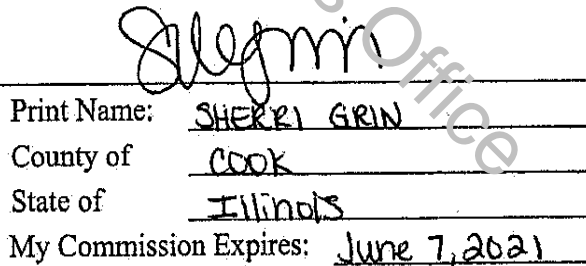 s Office
Print Name: SHERRI GRIN
County of COOK
State of Illinois
My Commission Expires: June 7, 2021